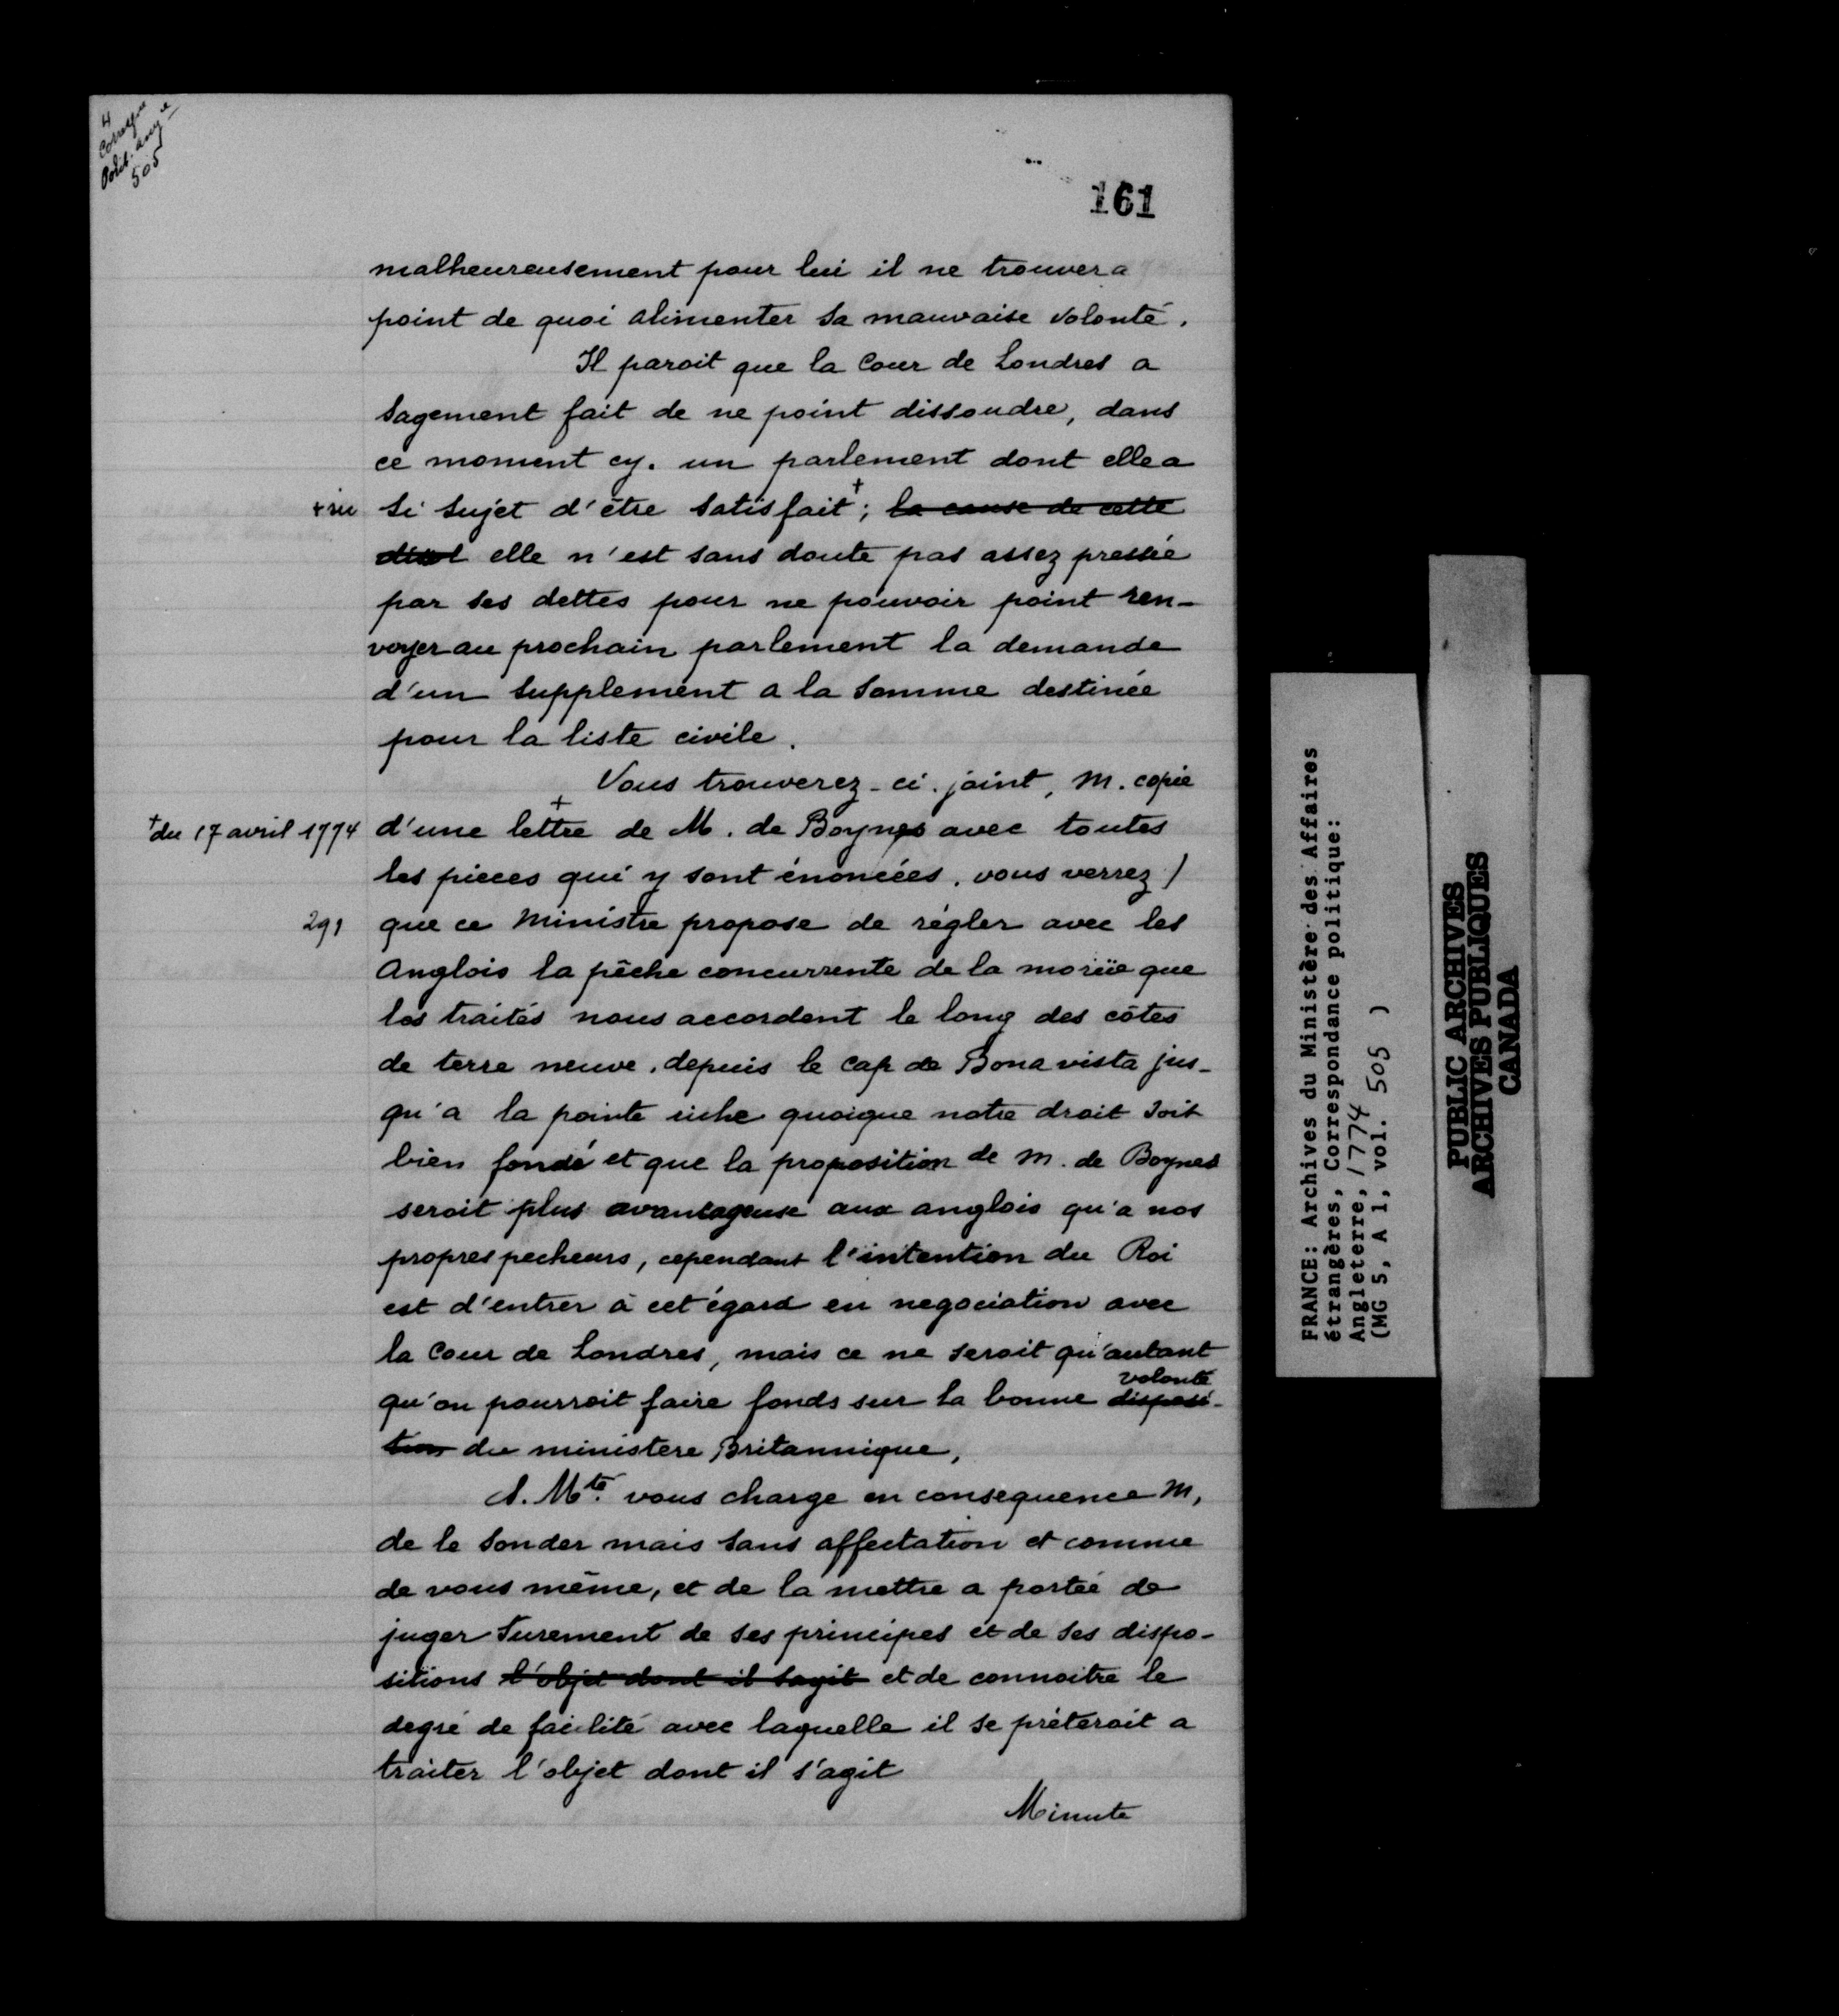 4
Corresp.ce
Polit. ang.re
505
161
malheureusement pour lui il ne trouvera
point de quoi alimenter sa mauvaise volonté.
Il paroit que la Cour de Londres a
sagement fait de ne point dissoudre, dans
ce moment cy. un parlement dont elle a
si sujet d'être satisfait + ; la cause de cette
elle n'est sans doute pas assez pressée
par ses dettes pour ne pouvoir point ren-
voyer au prochain parlement la demande
d'un supplement a la somme destinée
pour la liste civile.
Vous trouverez-ci. joint, M. copie
+ du 17 avril 1774
d'une lettre + de M. de Boynes avec toutes
les pieces qui y sont énoncées. vous verrez /
291
que ce Ministre propose de régler avec les
Anglois la pêche concurrente de la morüe que
les traités nous accordent le long des côtes
de terre neuve. depuis le Cap de Bona vista jus-
qu'a la pointe riche quoique notre droit soit
bien fondé et que la proposition de M. de Boynes
seroit plus avantageuse aux anglois qu'a nos
propres pecheurs, cependant l'intention du Roi
est d'entrer à cet égard en negociation avec
la Cour de Londres, mais ce ne seroit qu'autant
volonté
qu'on pourroit faire fonds sur la bonne disposi-
tion du ministere Britannique,
S. Mté. vous charge en consequence M,
de le sonder mais sans affectation et comme
de vous même, et de la mettre a portée de
juger surement de ses principes et de ses dispo-
sitions l'objet dont il sagit et de connoitre le
degré de facilité avec laquelle il se préteroit a
traiter l'objet dont il s'agit
Minute
FRANCE: Archives du Ministère des Affaires
étrangères, Correspondance politique:
Angleterre, 1774
(MG 5, A 1, vol. 505 )
PUBLIC ARCHIVES
ARCHIVES PUBLIQUES
CANADA